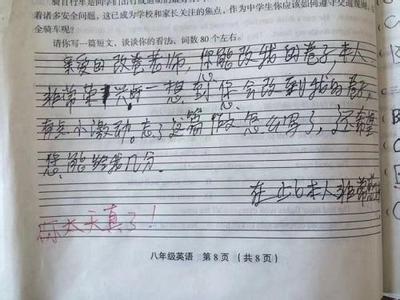 着诸多安全问题，这已成为学校和家长关注的焦点，作为中学生你应该如何遵守交通规则，
全骑车呢？
请你写一篇短文，谈谈你的看法。词数80个左右。
亲爱的改卷老师，您能改我的卷子，本人
非常荣兴，一想到您会改到我的卷子，
有点小激动。忘了这篇作文怎么写了，还希望
您能给我几分。
在此本人非常
你太天真了！
八年级英语 第8页（共8页）